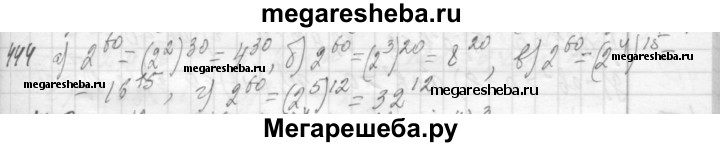 megaresheba.ru
444 а) 2^60 = (2^2)^30 = 4^30, б) 2^60 = (2^3)^20 = 8^20, в) 2^60 = (2^4)^15 =
megaresheba.ru megaresheba.ru megaresheba.ru
= 16^15, г) 2^60 = (2^5)^12 = 32^12
megaresheba.ru megaresheba.ru
Мегарешеба.ру